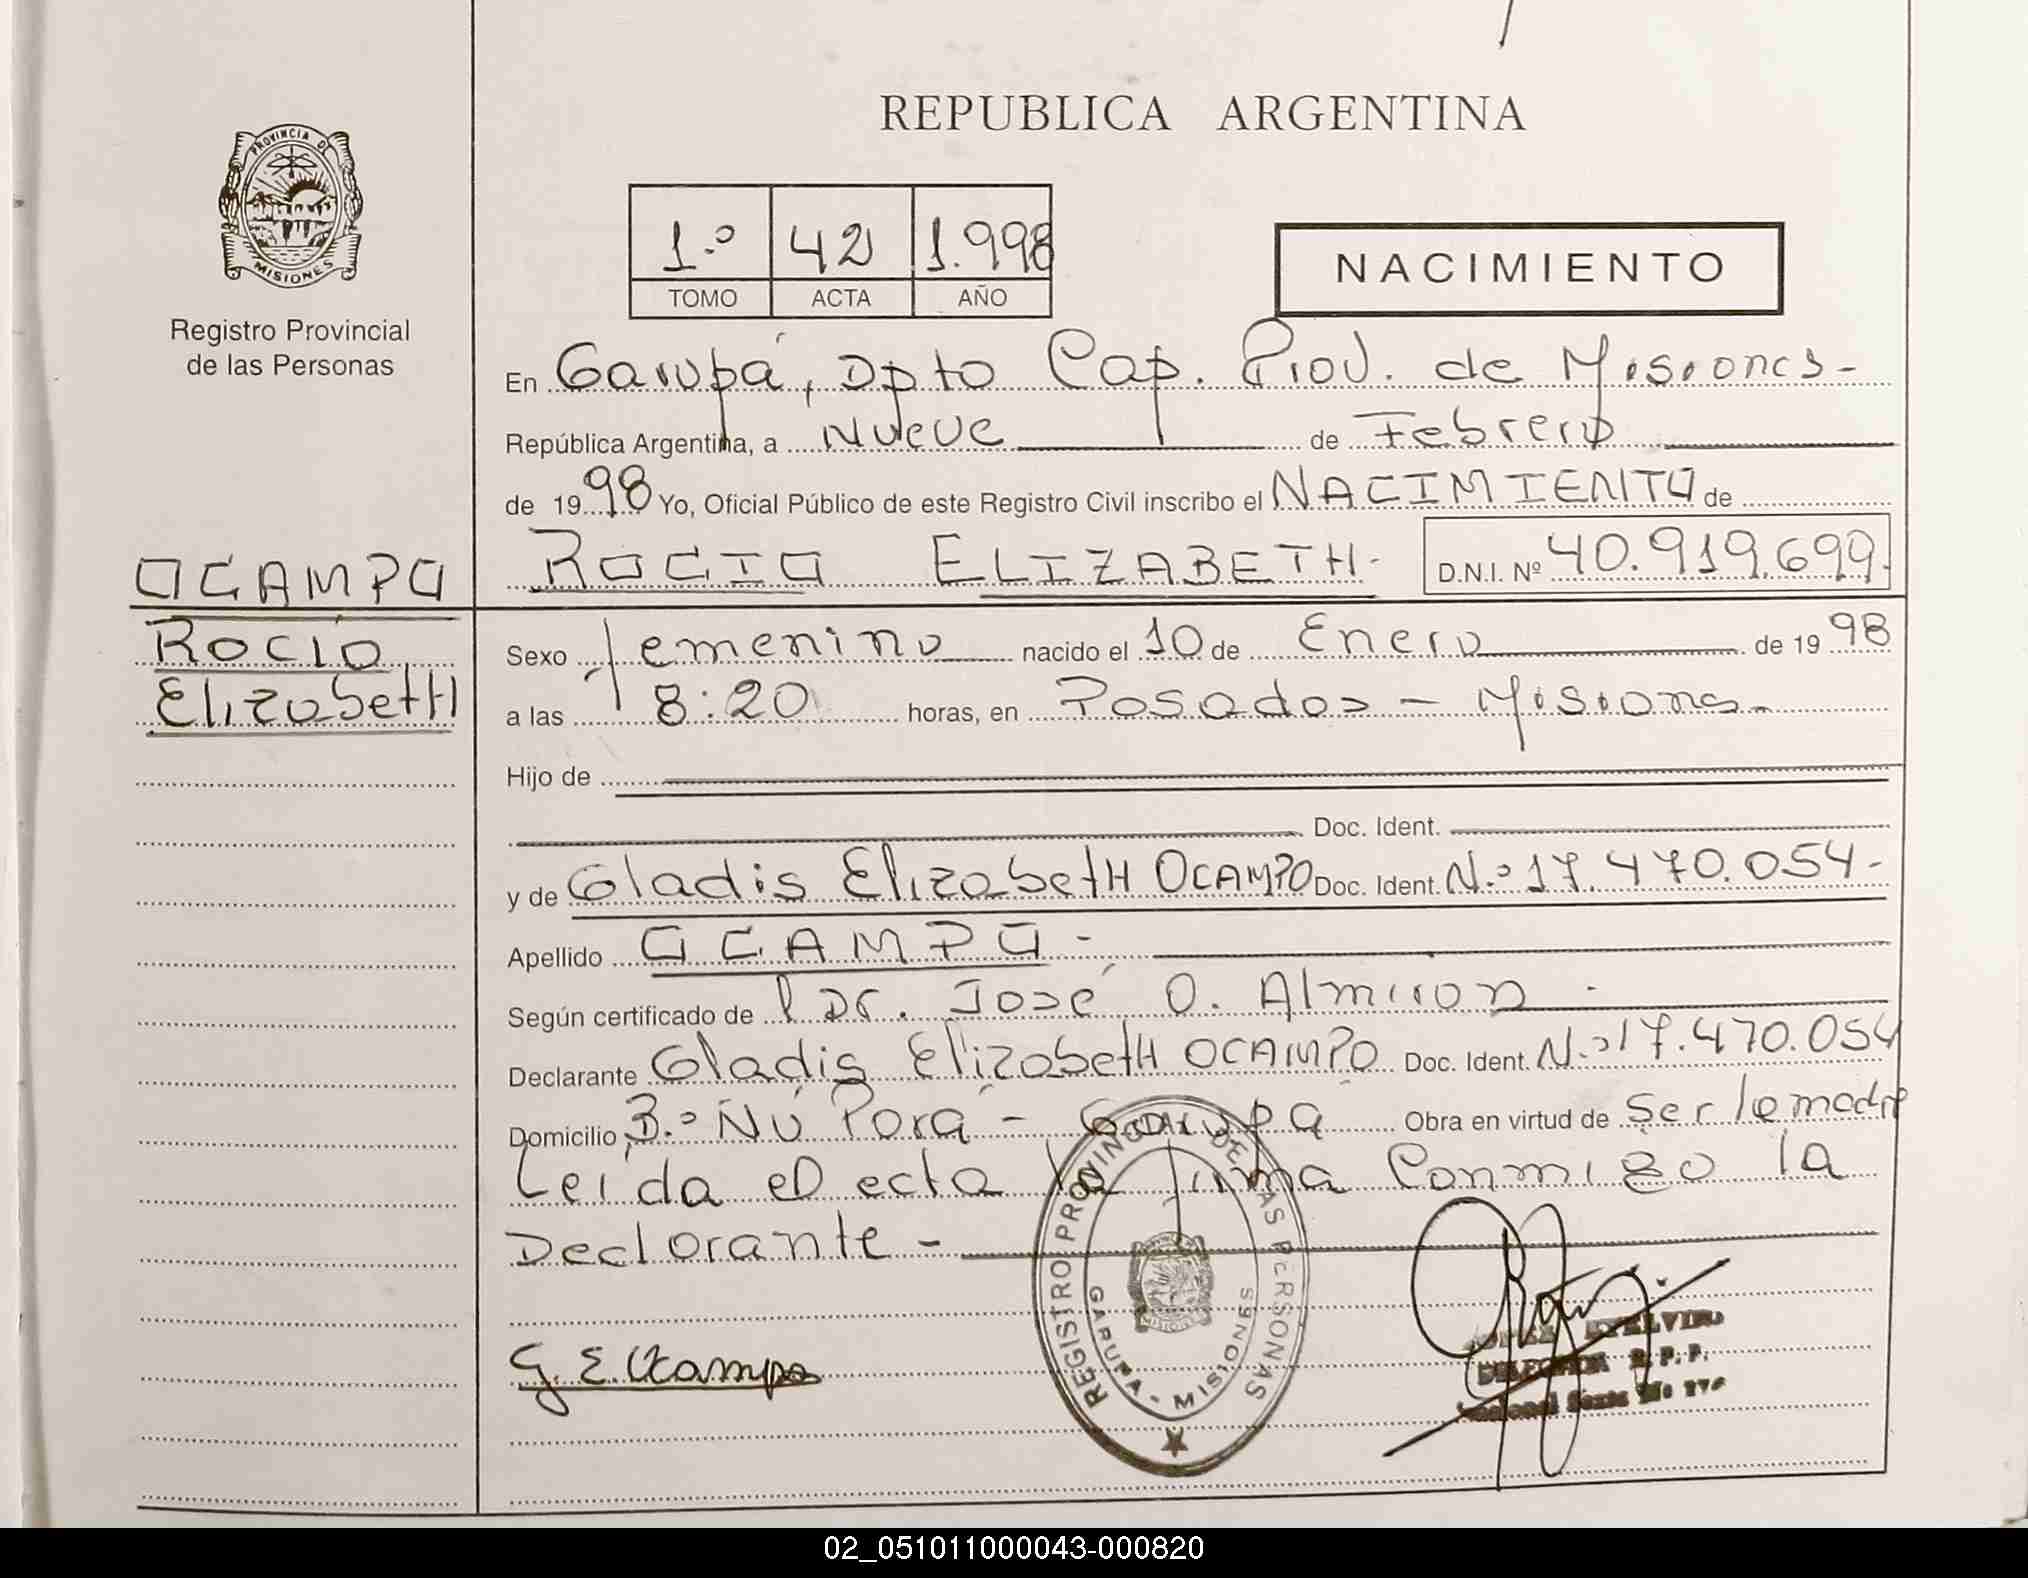 REPUBLICA ARGENTINA
PROVINCIA DE
MISIONES
Registro Provincial
de las Personas
1.º 42 1.998
TOMO ACTA AÑO
NACIMIENTO
En Garupá, Dpto Cap. Prov. de Misiones-
República Argentina, a Nueve de Febrero
de 1998 Yo, Oficial Público de este Registro Civil inscribo el NACIMIENTO de
ROCIO ELIZABETH- D.N.I. Nº 40.919.699-
OCAMPO
Rocío
ElizabetH
Sexo femenino nacido el 10 de Enero de 1998
a las 8:20 horas, en Posadas - Misiones-
Hijo de
Doc. Ident.
y de Gladis ElizabetH OCAMPO Doc. Ident. N.º 17.470.054-
Apellido OCAMPO-
Según certificado de l Dr. José O. Almiron -
Declarante Gladis ElizabetH OCAMPO Doc. Ident. N.º 17.470.054
Domicilio B.º Ñú Porá - Garupá Obra en virtud de ser la madre
Leída el acta la firma Conmigo la
Declarante -
G. E. Ocampo
REGISTRO PROVINCIAL DE LAS PERSONAS
GARUPA - MISIONES
MISIONES
DELEGADA R.P.P.
02_051011000043-000820